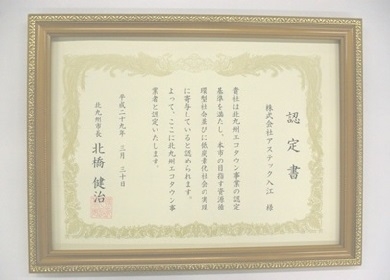 認定書
株式会社アステック入江 様
貴社は北九州エコタウン事業の認定
基準を満たし、本市の目指す資源循
環型社会並びに低炭素化社会の実現
に寄与していると認められます。
よって、ここに北九州エコタウン事
業者と認定いたします。
平成二十九年 三月 三十日
北九州市長
北橋 健治